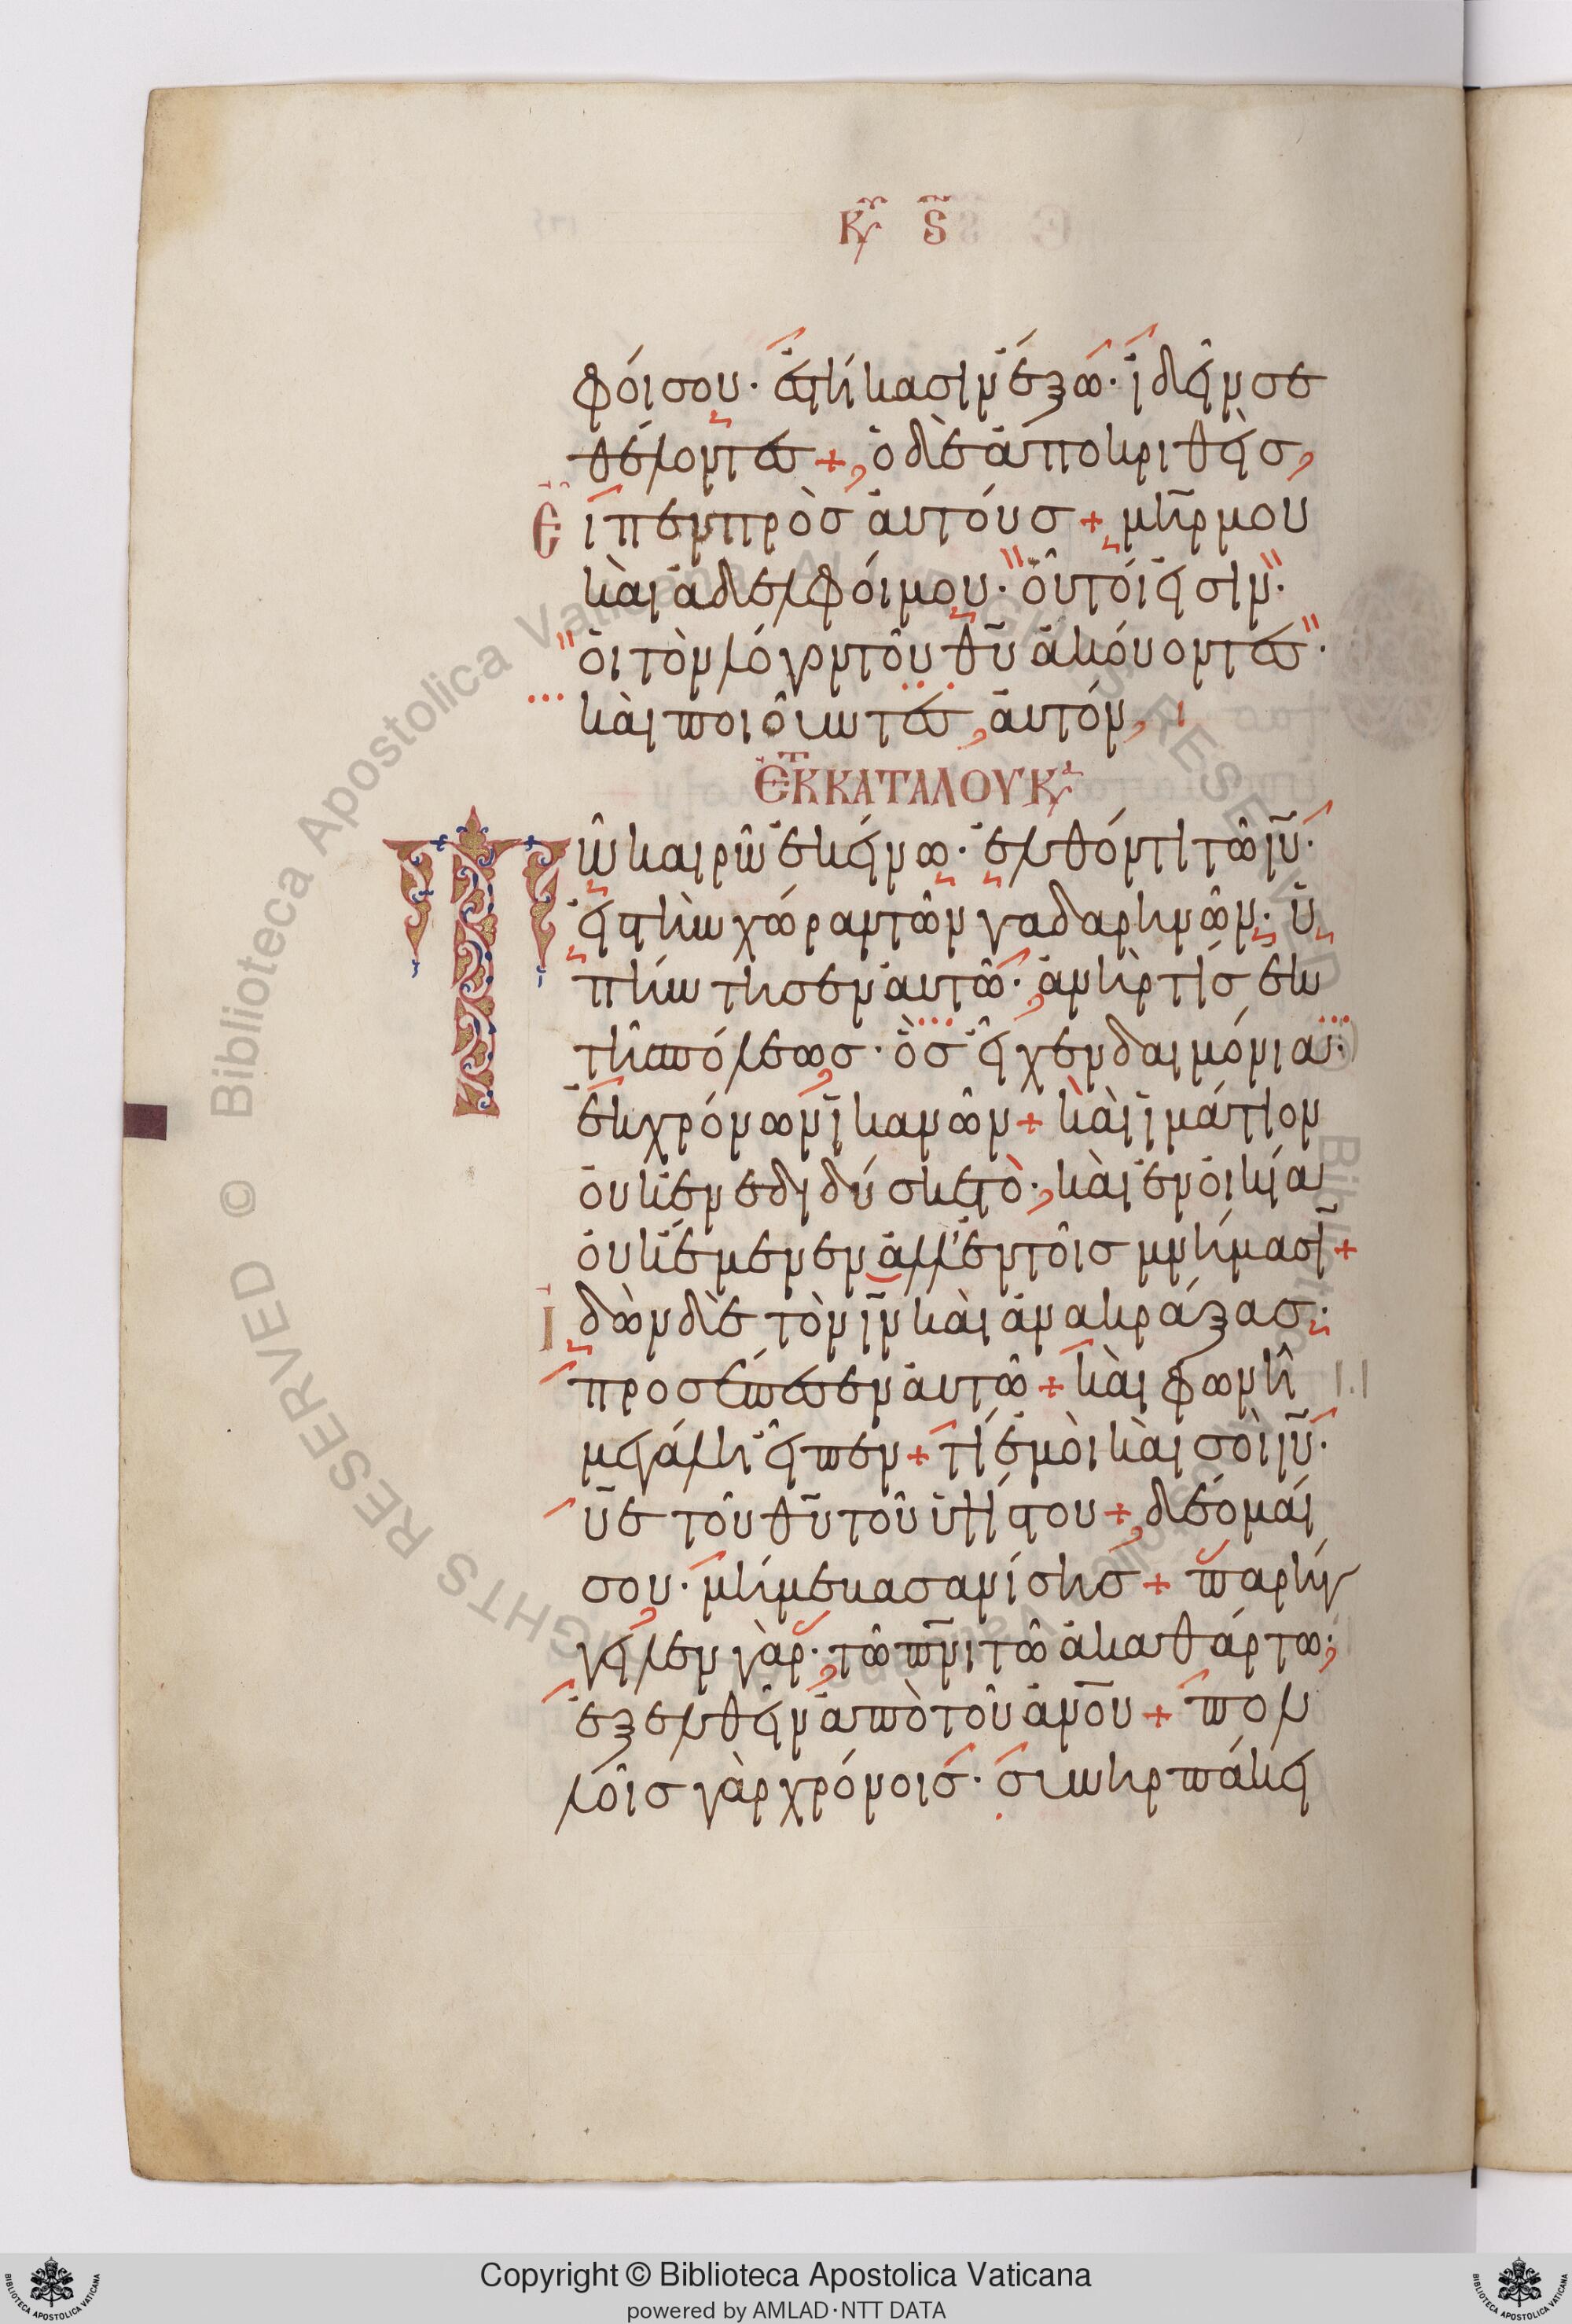 Κυ ϛ
φόι σου· ἑστήκασιν ἔξω· ἰδεῖν σε
θέλοντες + ὁ δὲ ἀποκριθεὶσ,
Εἶπεν πρὸσ ἀυτούσ + μη̅ρ μου
κὰι ἀδελφόι μου· οὗτόι εἰσιν·
ὁι τὸν λόγον τοῦ θ̅υ ἀκούοντεσ·
κὰι ποιοῦντεσ, ἀυτόν,
ἘΚ ΚΑΤΑ ΛΟΥΚ
Τῶ καιρῶ ἐκείνω· ἐλθόντι τῶ ι̅υ·
εἰσ τὴν χώραν τῶν γαδαρηνῶν· ὑ
πήντησεν ἀυτῶ· ἀνὴρ τίσ ἐκ
τῆσ πόλεωσ· ὃσ εἶχεν δαιμόνια·
ἐκ χρόνων ἱκανῶν + κὰι ἱμάτιον
ὀυκ ἐνεδιδύσκετο·, κὰι ἐν ὀικία
ὀυκ ἔμενεν ἀλλ' ἐν τοῖσ μνήμασι +
Ἰδὼν δὲ τὸν ι̅ν κὰι ἀνακράξασ·
προσέπεσεν ἀυτῶ + κὰι φωνῆ
μεγάλη εἶπεν + τί ἐμὸι κὰι σὸι ι̅υ·
υ̅ε τοῦ θ̅υ τοῦ ὑψίστου +, δέομάι
σου· μή με βασανίσησ + παρήγ
γειλεν γὰρ·, τῶ π̅νι τῶ ἀκαθάρτω·,
ἐξελθεῖν ἀπὸ τοῦ ἀν̅ου + πολ
λοῖσ γὰρ χρόνοισ· συνηρπάκει
Copyright © Biblioteca Apostolica Vaticana
powered by AMLAD·NTT DATA